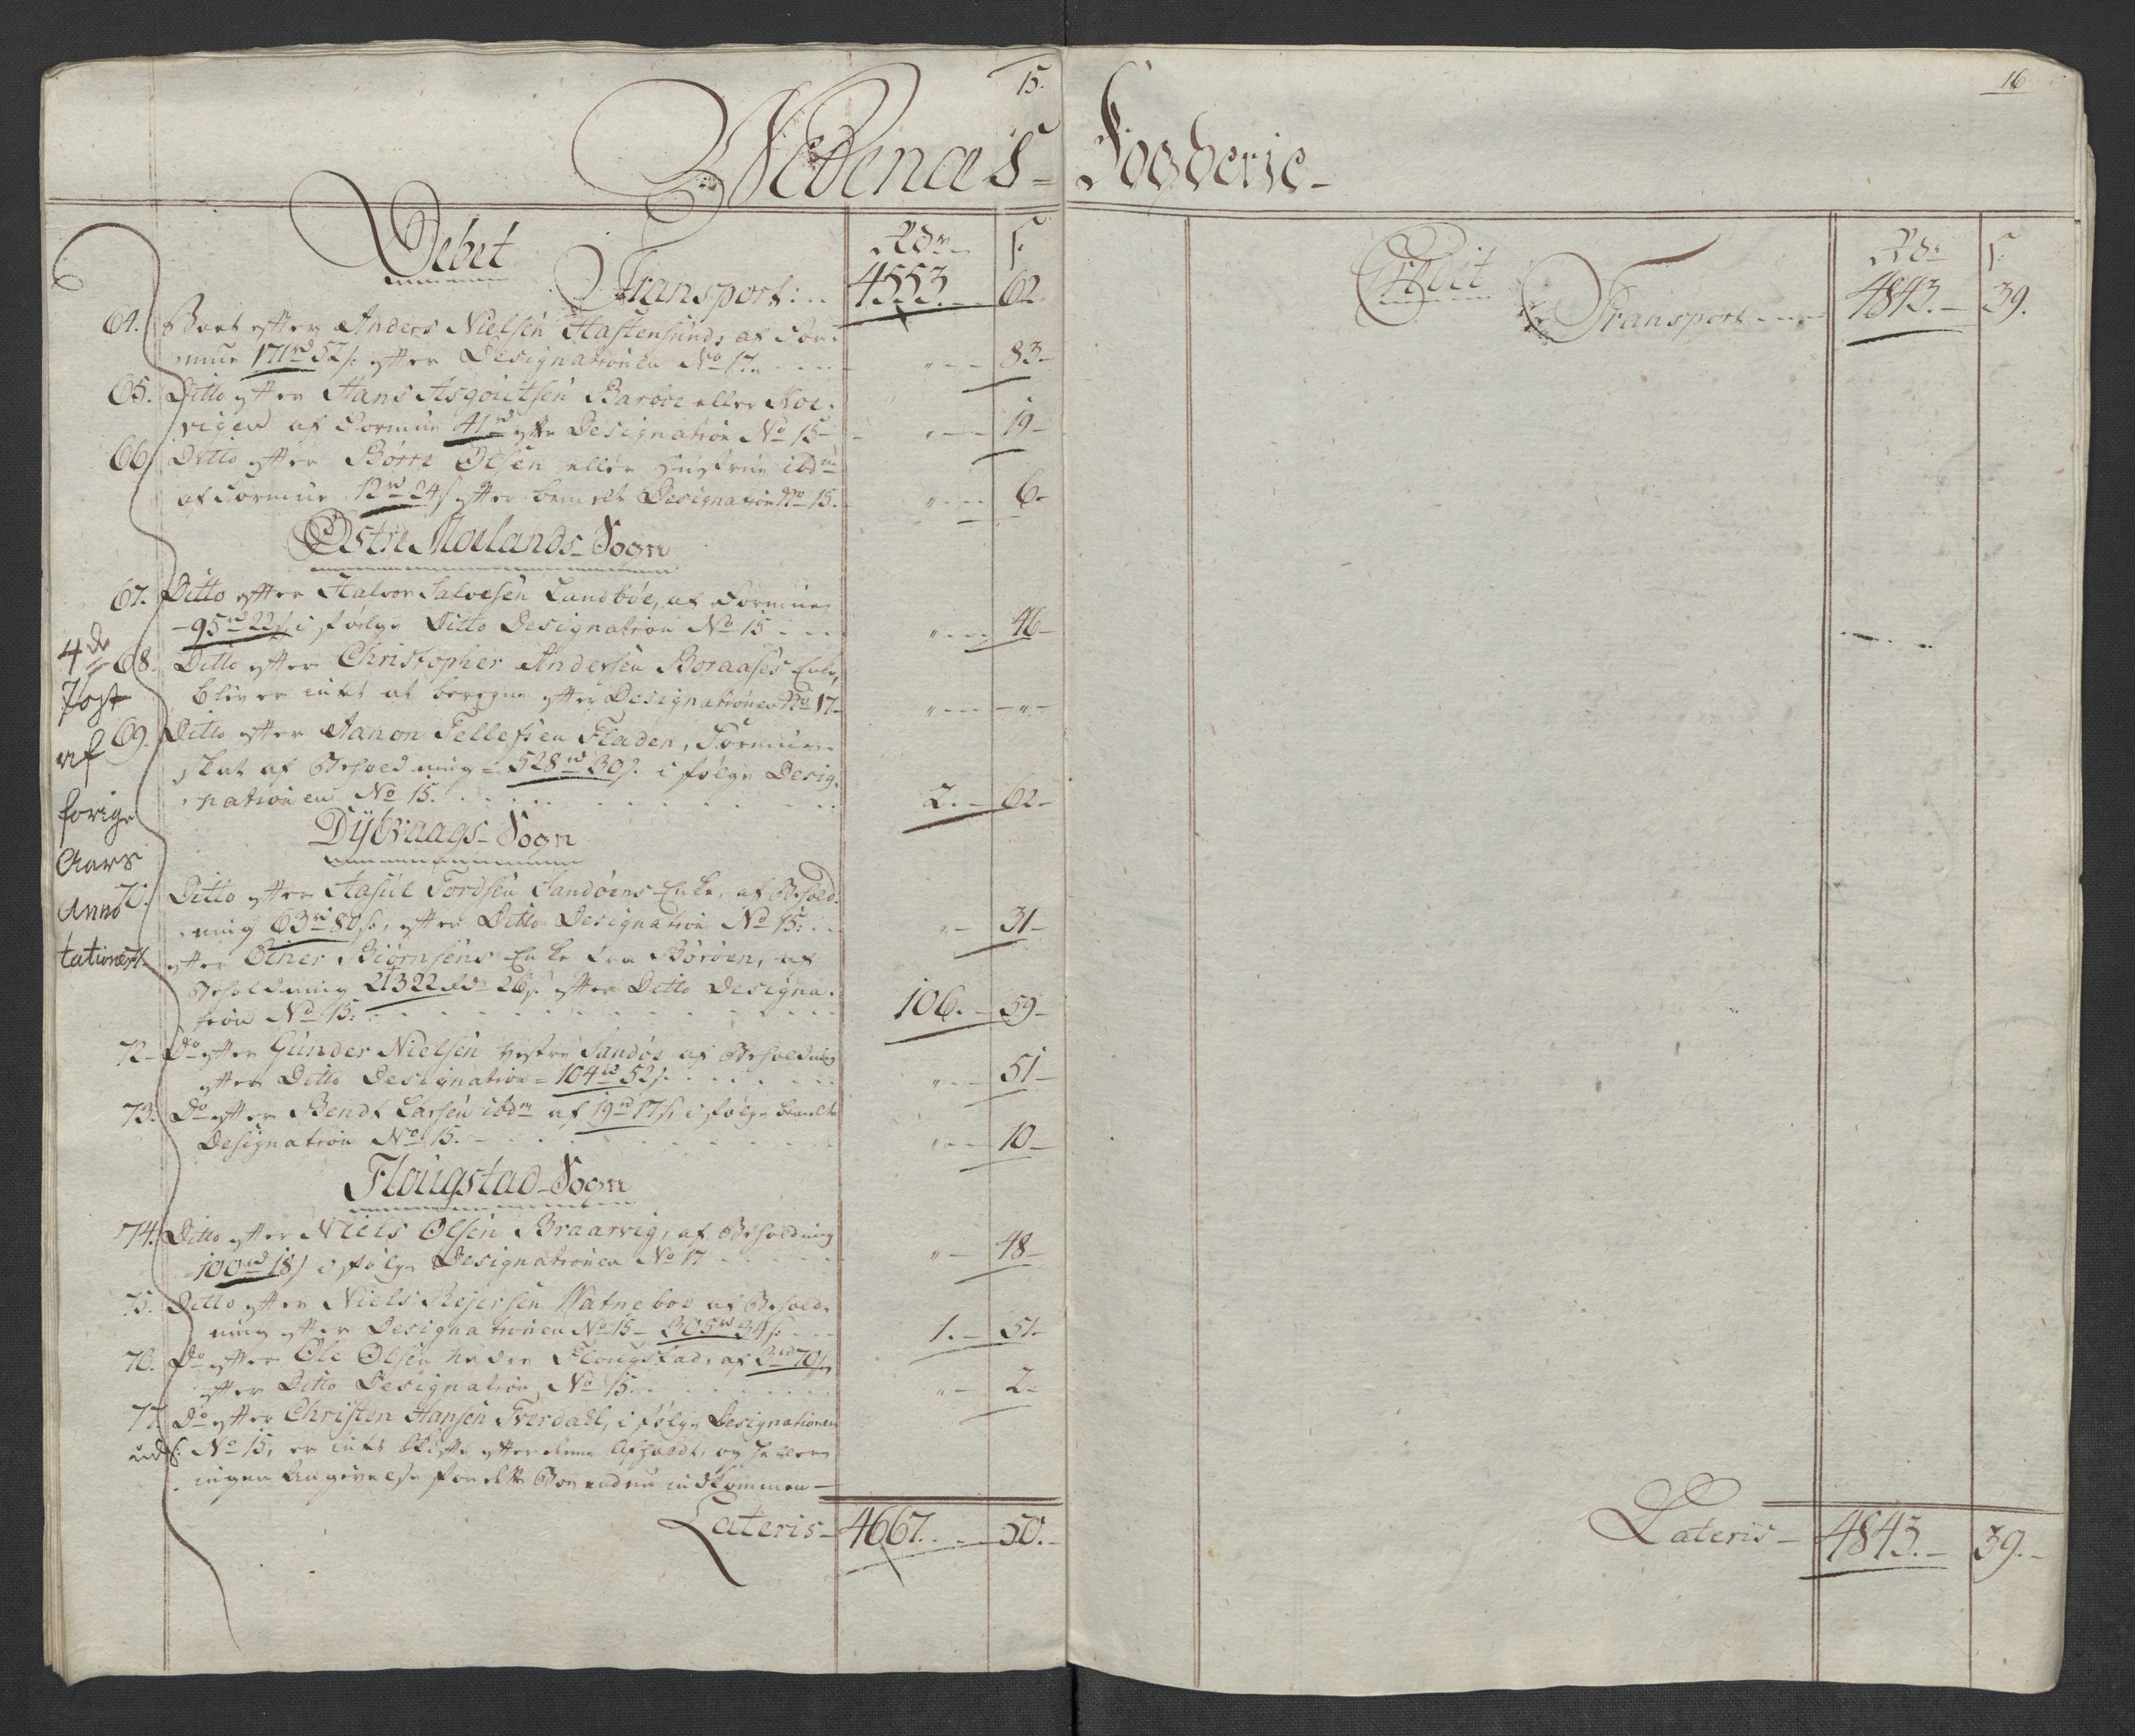 15.
Nedenæs-
Debet
Rdr s.
Transport: 4553. 62
64. Boet efter Anders Nielsen Hastensund, af For-
mue 171rd 52s. efter Designationen No 17. " 83
65. Ditto efter Hans Asgoutsen Barboe eller Noe-
vigen af Formue 41rd efter Designation No 15 " 19
66. Ditto efter Börre Olsen eller Hustrue ibdm
af Formue 12rd 24s efter bemelte Designation No 15. " 6
Østre Molands Sogn
67. Ditto efter Halvor Salvesen Lundböe, af Formue
95rd 22s i følge Ditto Designation No 15 " 46
68. Ditto efter Christopher Andersen Boraases Enke,
bliver intet at beregne efter Designationen No 17 " "
69. Ditto efter Aanon Tellefsen Fladen, Formue-
skat af Beholdning 528rd 30s. i følge Desig-
nationen No 15. 2. 62
Dybvaags Sogn
70. Ditto efter Aasul Tordsen Sandöens Enke, af Behold-
ning 63rd 80s, efter Ditto Designation No 15. " 31
71. efter Einer Biörnsens Enke fra Börøen, af
Beholdning 21322rd 26s. efter Ditto Designa-
tion No 15. 106. 59
72. Do efter Gunder Nielsen Vestre Sandöe af Beholdning
efter Ditto Designation 104rd 52s. " 51
73. Do efter Bendt Larsen ibdm af 19rd 17s, i følge bemelte
Designation No 15. " 10
Flougstad Sogn
74. Ditto efter Niels Olsen Braarvig, af Beholdning
100rd 18s i følge Designationen No 17 " 48
75. Ditto efter Niels Rejersen Watneboe af Behold-
ning efter Designationen No 15 305rd 34s. 1. 51
76. Do efter Ole Olsen nedre Flougstad, af 3rd 70s
efter Ditto Designation No 15. " 2
77. Do efter Christen Hansen Tverdahl, i følge Designationen
No 15, er intet Skifte efter denne Afholdt, og Hellere
ingen Angivelse for dette Boe endnu indkommen
Lateris 4667. 50.
4de
Post
af
forige
Aars
Anno
tationer
udf:
16
Fogderie
Credit
Rdr s.
Transport 4843. 39.
Lateris 4843. 39.